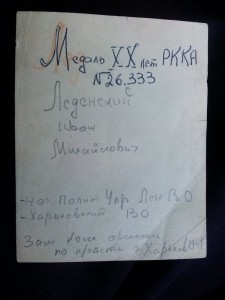 Медаль XX лет РККА
№26.333
Леденский С
Иван
Михайлович
- Полит Упр Лен ВО
- Харьковский ВО
Зам
по г Харьков